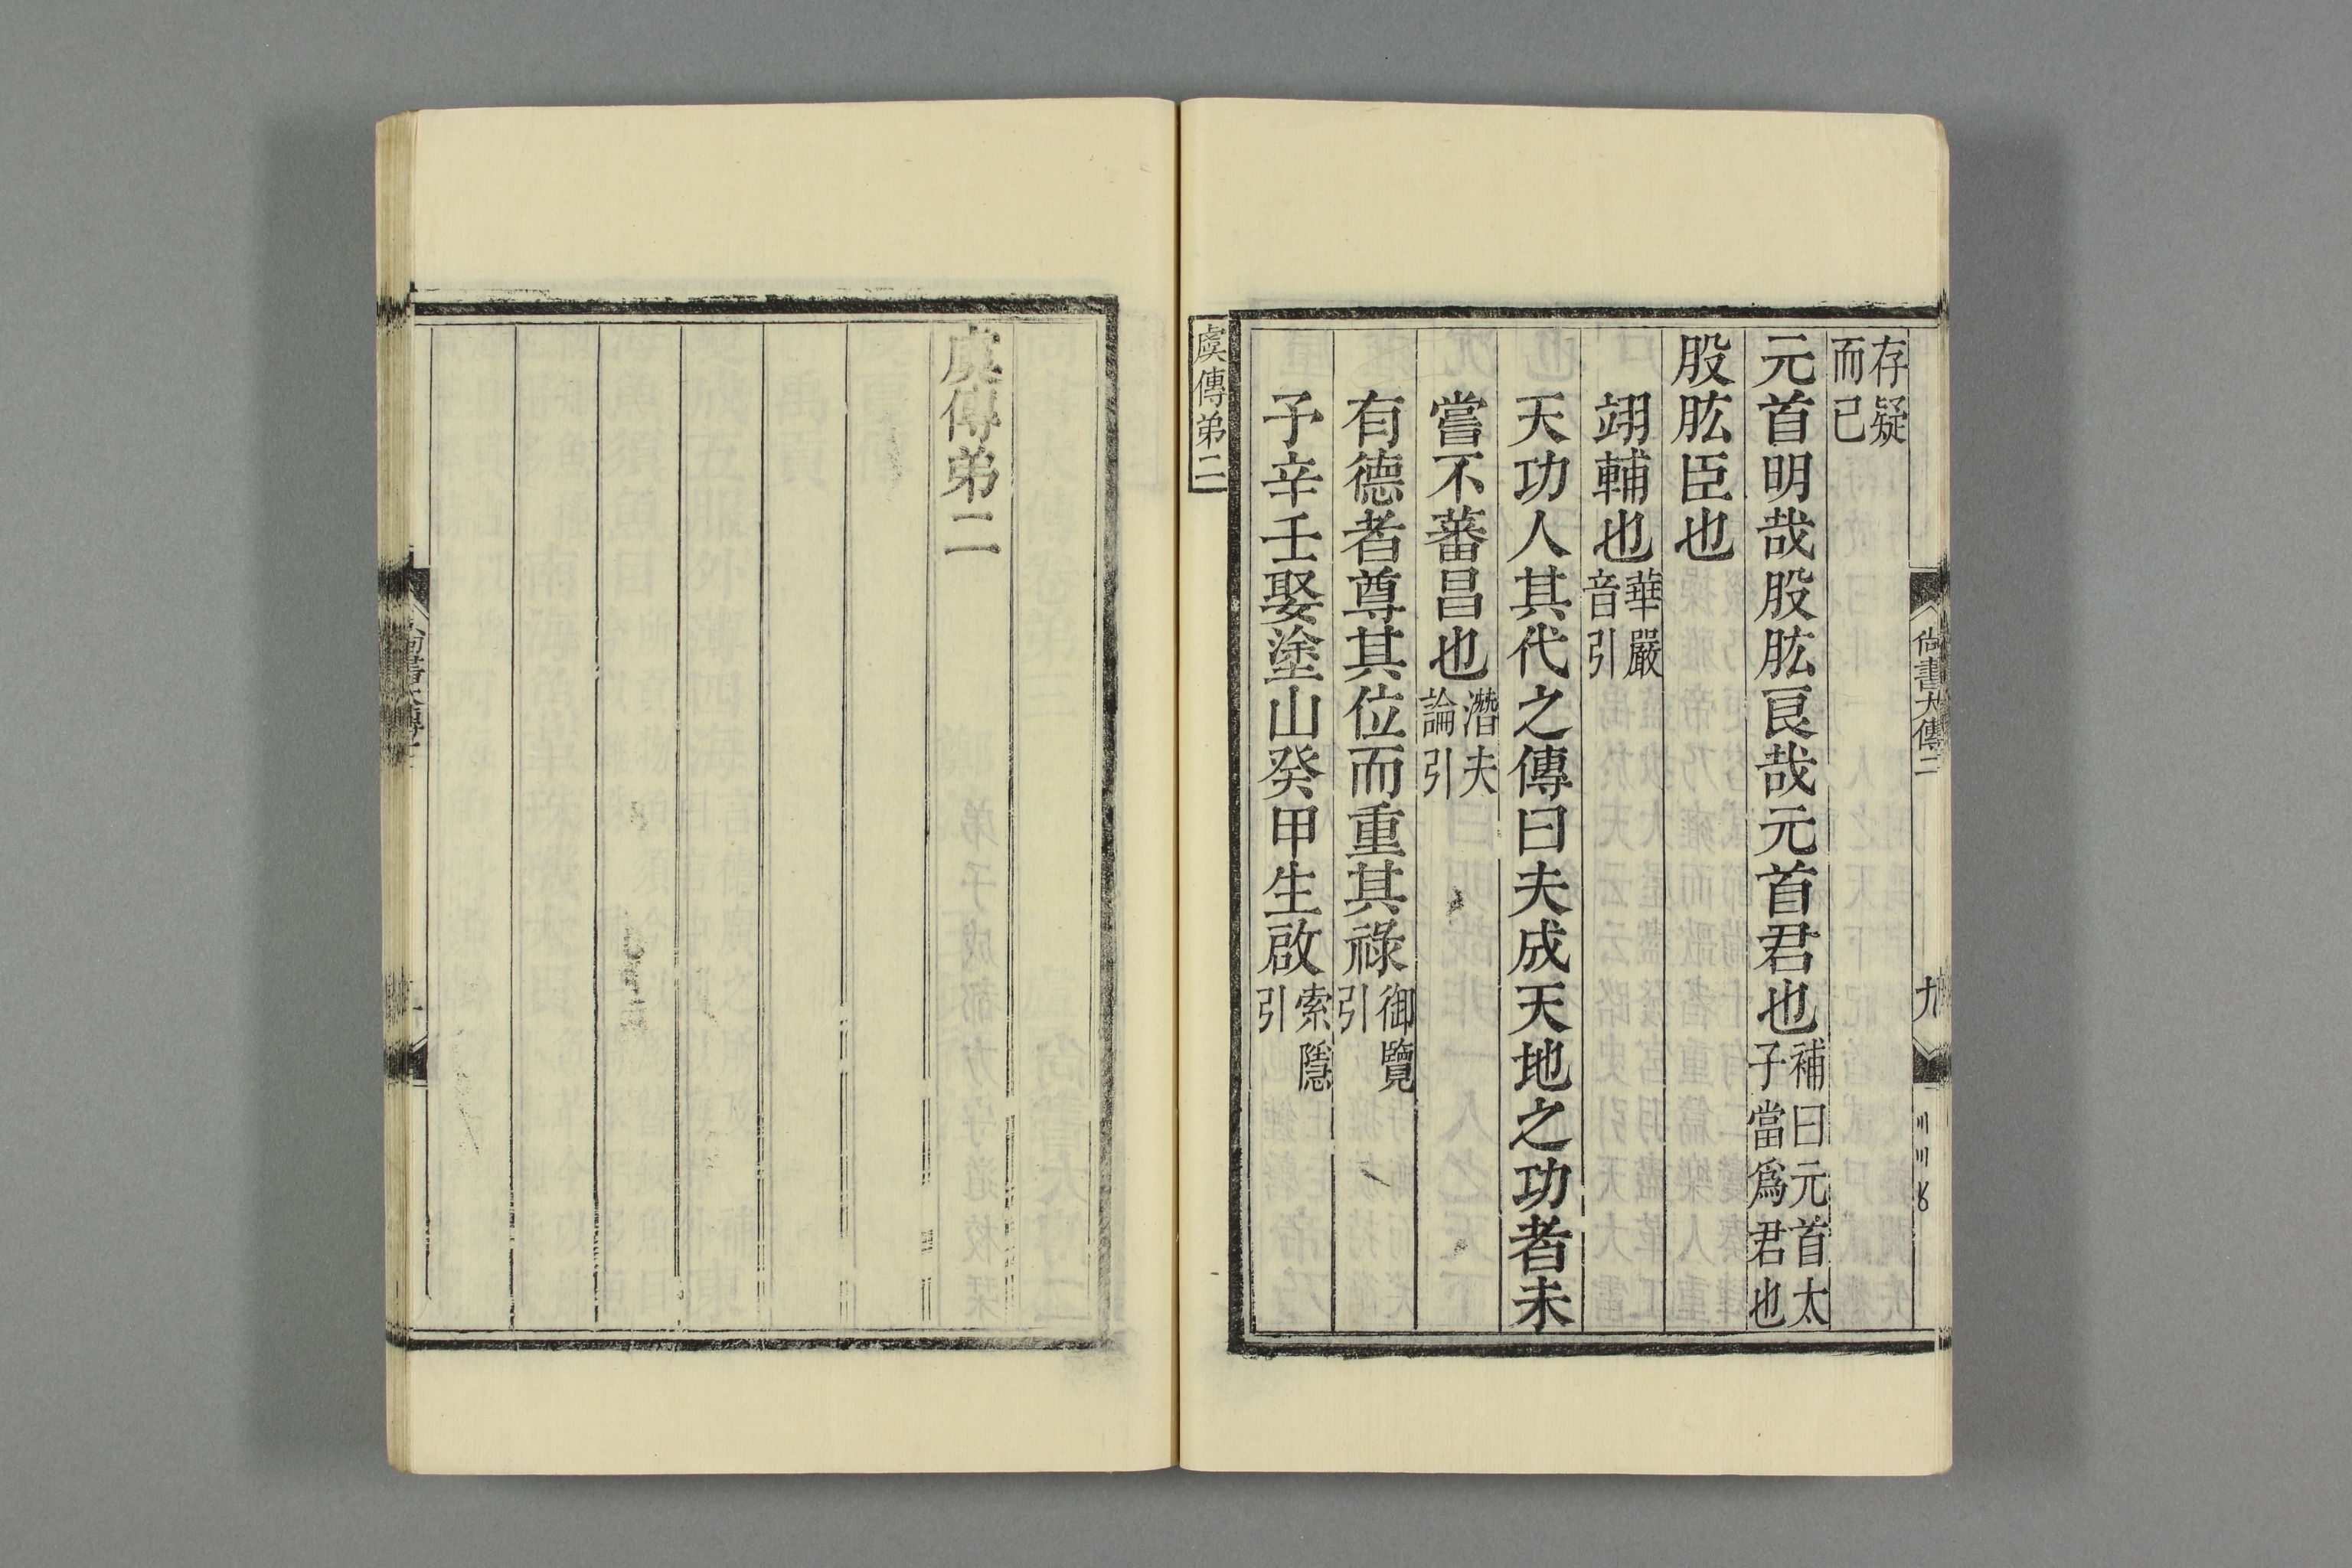 尙書大傳二
九
存疑
而已
元首明哉股肱良哉元首君也補曰元首太
子當爲君也
股肱臣也
翊輔也華嚴
音引
天功人其代之傳曰夫成天地之功者未
嘗不蕃昌也潛夫
論引
有德者尊其位而重其祿御覽
引
予辛壬娶塗山癸甲生啟索隱
引
虞傳弟二
虞傳弟二